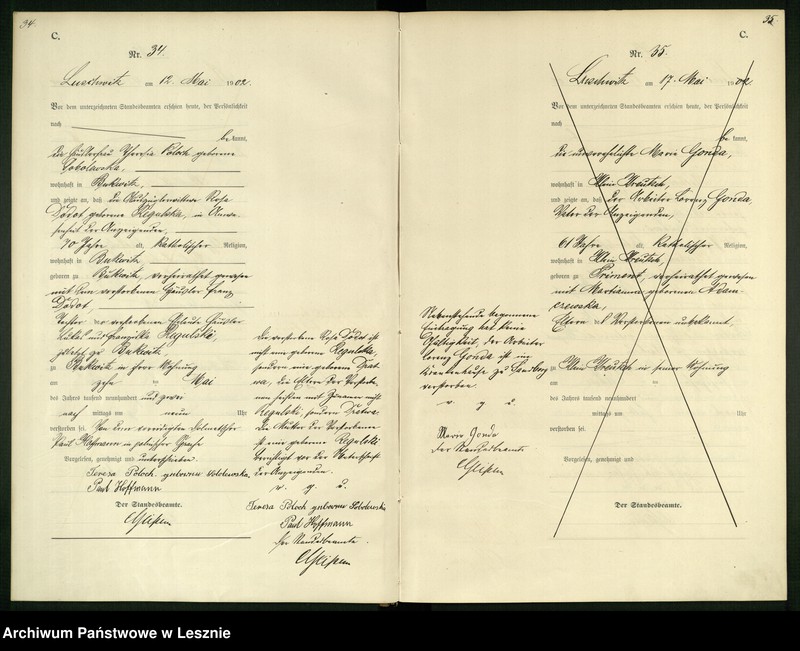 34.
C.
Nr. 34.
Luschwitz am 12. Mai 1902.
Vor dem unterzeichneten Standesbeamten erschien heute, der Persönlichkeit
nach
bekannt,
die Häuslerfrau Theresia Poloch geborene
wohnhaft in Bukwitz,
und zeigte an, daß die Rosa
Dådot geborene Regulska, in Anwe-
senheit der Anzeigenden,
70 Jahre alt, katholischer Religion,
wohnhaft in Bukwitz
geboren zu Bukwitz, verheirathet gewesen
mit dem verstorbenen Häusler Franz
Dådot,
Tochter der verstorbenen Häusler
und Franziska Regulski,
zuletzt zu Bukwitz
zu Bukwitz in ihrer Wohnung
am zehn ten Mai
des Jahres tausend neunhundert und zwei
nach mittags um neun Uhr
verstorben sei. Von dem vereidigten Dolmetscher
Paul Hoffmann in polnischer Sprache
Vorgelesen, genehmigt und unterschrieben.
Teresa Poloch geborene
Paul Hoffmann
Der Standesbeamte.
Die verstorbene Rosa Dådot ist
nicht eine geborene Regulska,
sondern eine geborene
die Eltern der Verstorbe-
nen heißen mit Zunamen nicht
Regulski, sondern
Die Mutter der Verstorbenen
ist eine geborene Regulski
der Anzeigenden.
v. g. u.
Teresa Poloch geborene
Paul Hoffmann
Der Standesbeamte.
35.
C.
Nr. 35.
Luschwitz am 17. Mai 1902.
Vor dem unterzeichneten Standesbeamten erschien heute, der Persönlichkeit
nach
bekannt,
die unverehelichte Marie Gonda,
wohnhaft in Klein Kreutsch,
und zeigte an, daß der Arbeiter Lorenz Gonda,
Vater der Anzeigenden,
61 Jahre alt, katholischer Religion,
wohnhaft in Klein Kreutsch,
geboren zu Priment, verheirathet gewesen
mit Marianna geborenen Adam-
czewska,
Eltern des Verstorbenen unbekannt,
zu Klein Kreutsch in seiner Wohnung
am
des Jahres tausend neunhundert
mittags um Uhr
verstorben sei.
Vorgelesen, genehmigt und
Der Standesbeamte.
Nebenstehende begonnene
Eintragung hat keine
Gültigkeit, der Arbeiter
Lorenz Gonda ist im
Krankenhause zu
verstorben.
v. g. u.
Marie Gonda
Der Standesbeamte
Archiwum Państwowe w Lesznie